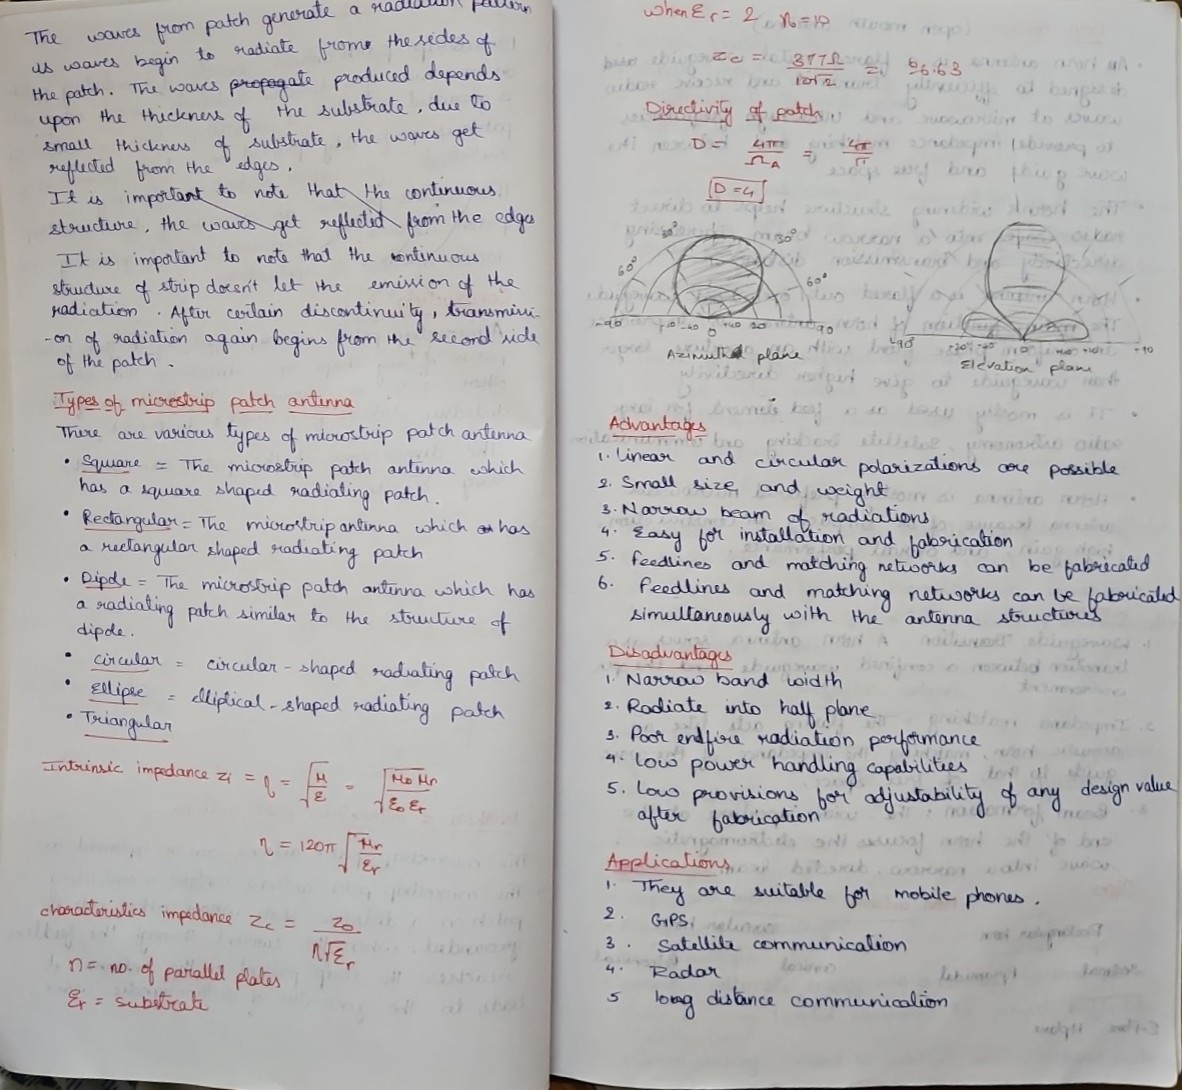 The waves from patch generate a radiation pattern
as waves begin to radiate frome the sedes of
the patch. The waves propagate produced depends
upon the thickness of the substrate, due to
small thickness of substrate, the waves get
reflected from the edges.
It is important to note that the continuous
structure, the waves get reflected from the edge
It is important to note that the continuous
structure of strip doesn't let the emission of the
radiation. After certain discontinuity, transmissi-
-on of radiation again begins from the second side
of the patch.
Types of microstrip patch antenna
There are various types of microstrip patch antenna
• Square = The microstrip patch antenna which
has a square shaped radiating patch.
• Rectangular = The microstrip antenna which has
a rectangular shaped radiating patch
• Dipole = The microstrip patch antenna which has
a radiating patch similar to the structure of
dipole.
• circular = circular-shaped radiating patch
• Ellipse = elliptical-shaped radiating patch
• Triangular
Intrinsic impedance Zi = η = √(μ/ε) = √(μ0 μr / ε0 εr)
η = 120π √(μr/εr)
characteristics impedance Zc = Z0 / n√εr
n = no. of parallel plates
εr = substrate
when εr = 2, n =
Zc = 377Ω / 10√2 =
Directivity of patch
D = 4π / ΩA = 4π / π
D = 4
30° 30°
60° 60°
-90 -40 0 +40 90
Azimuth plane
-90 -40 0 +40 +90
Elevation plane
Advantages
1. linear and circular polarizations are possible
2. Small size and weight
3. Narrow beam of radiations
4. Easy for installation and fabrication
5. feedlines and matching networks can be fabricated
6. feedlines and matching networks can be fabricated
simultaneously with the antenna structures
Disadvantages
1. Narrow band width
2. Radiate into half plane
3. Poor endfire radiation performance
4. low power handling capabilities
5. Low provisions for adjustability of any design value
after fabrication
Applications
1. They are suitable for mobile phones.
2. GPS
3. Satellite communication
4. Radar
5 long distance communication